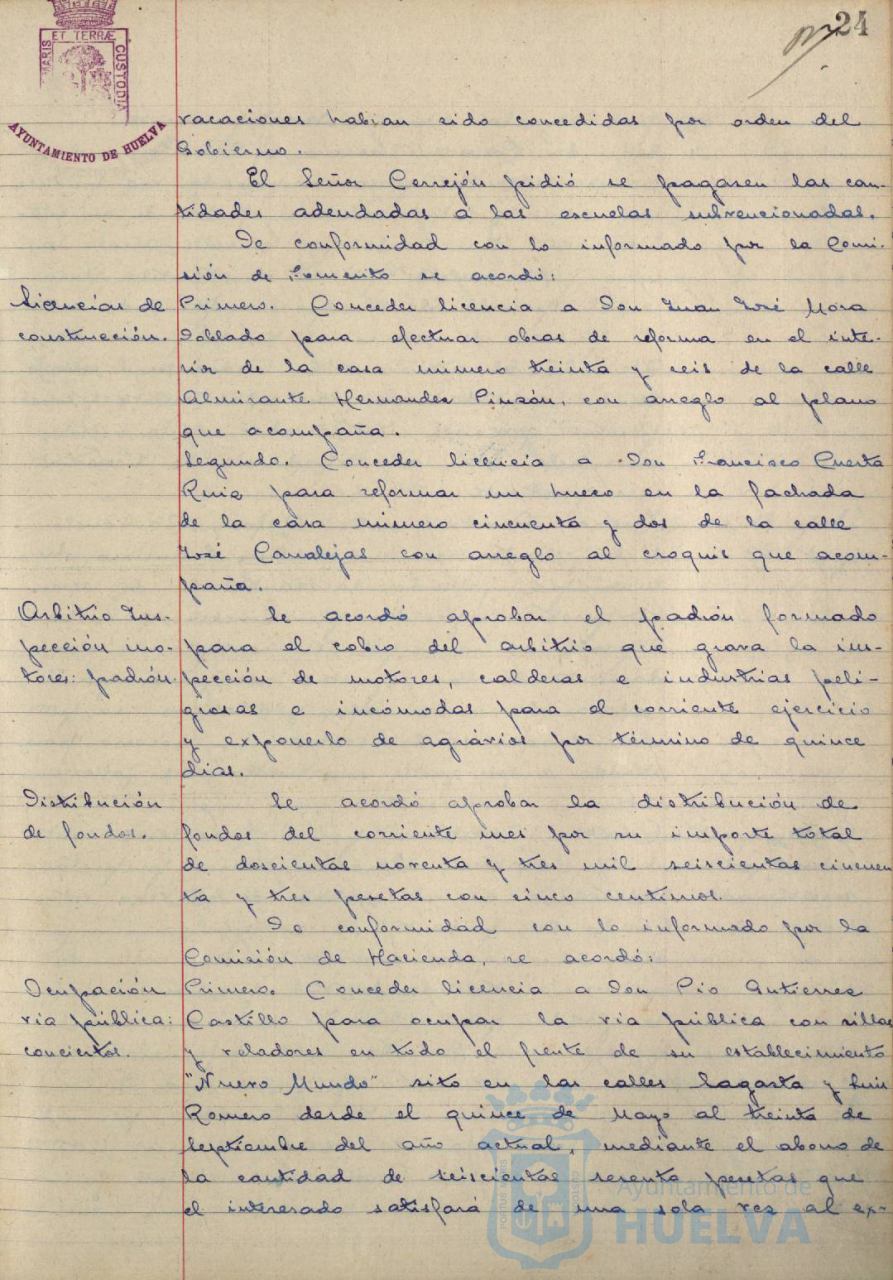 24
ET TERRÆ
MARIS
CUSTODIA
AYUNTAMIENTO DE HUELVA
vacaciones habian sido concedidas por orden del
Gobierno.
El Señor Cerrejón pidió se pagasen las can-
tidades adeudadas a las escuelas subvencionadas.
De conformidad con lo informado por la Comi-
sión de Fomento se acordó:
Licencias de
construcción.
Primero. Conceder licencia a Don Juan José Mora
Doblado para efectuar obras de reforma en el inte-
rior de la casa número treinta y seis de la calle
Almirante Hernandez Pinzón, con arreglo al plano
que acompaña.
Segundo. Conceder licencia a Don Francisco Cuesta
Ruiz para reformar un hueco en la fachada
de la casa número cincuenta y dos de la calle
José Canalejas con arreglo al croquis que acom-
paña.
Arbitrio Ins-
pección mo-
tores: padrón.
Se acordó aprobar el padrón formado
para el cobro del arbitrio que grava la ins-
pección de motores, calderas e industrias peli-
grosas e incómodas para el corriente ejercicio
y exponerlo de agrávios por término de quince
dias.
Distribución
de fondos.
Se acordó aprobar la distribución de
fondos del corriente mes por su importe total
de doscientas noventa y tres mil seiscientas cincuen
ta y tres pesetas con cinco centimos.
De conformidad con lo informado por la
Comisión de Hacienda, se acordó:
Ocupación
via pública:
conciertos.
Primero. Conceder licencia a Don Pio Gutierrez
Castillo para ocupar la via pública con sillas
y veladores en todo el frente de su establecimiento
"Nuevo Mundo" sito en las calles Sagasta y Luis
Romero desde el quince de Mayo al treinta de
Septiembre del año actual, mediante el abono de
la cantidad de seiscientas sesenta pesetas que
el interesado satisfará de una sola vez al ex-
Ayuntamiento de
HUELVA